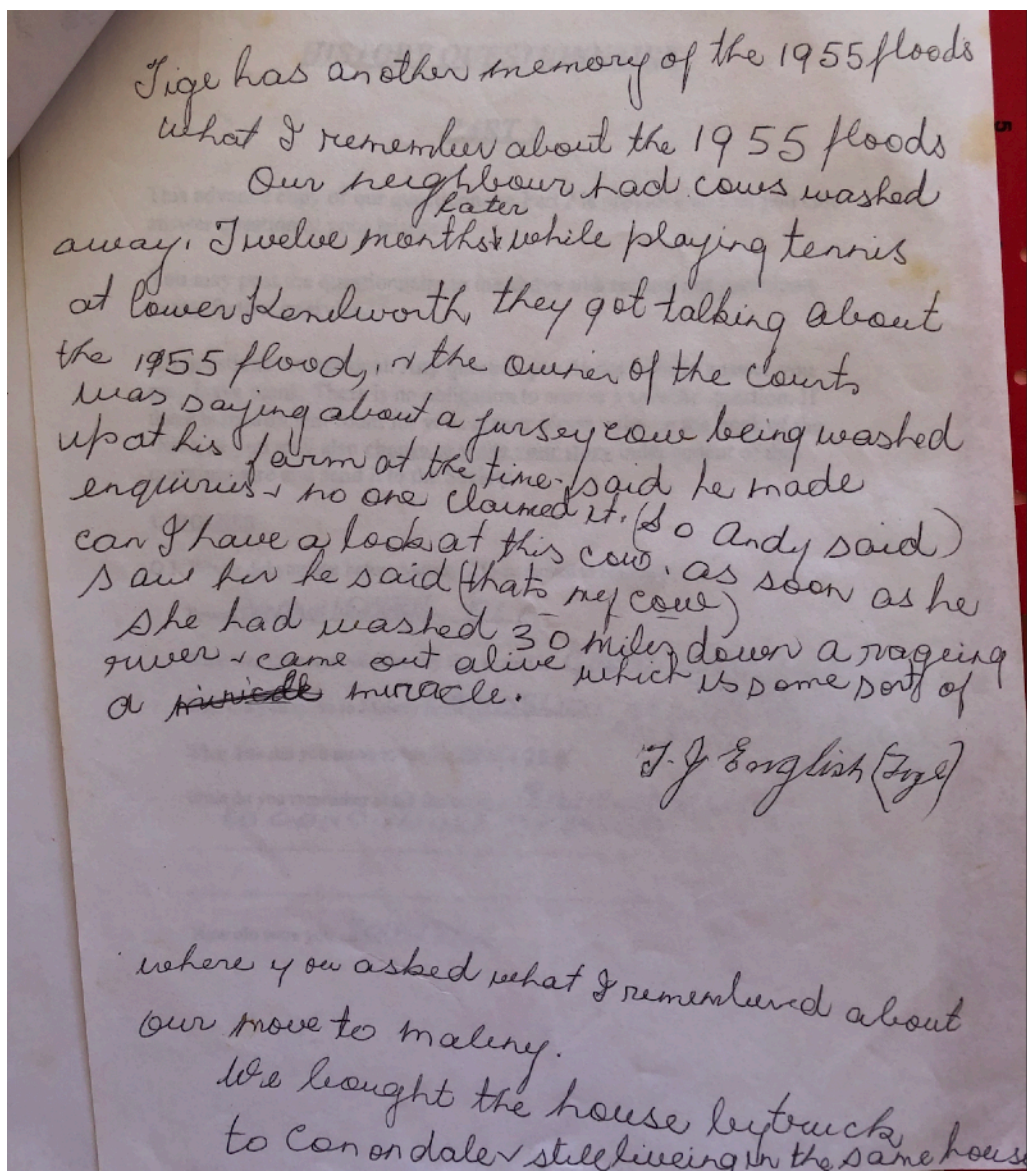 Tige has another memory of the 1955 floods
what I remember about the 1955 floods
Our neighbour had cows washed
later
away. Twelve months while playing tennis
at lower Kenilworth, they got talking about
the 1955 flood, & the owner of the courts
was saying about a jursey cow being washed
up at his farm at the time. said he made
enquiries & no one claimed it. (So Andy said)
can I have a look at this cow. as soon as he
saw her he said (thats my cow)
she had washed 30 miles down a rageing
river & came out alive which is some sort of
a miracle.
T. J English (Tige)
where you asked what I remembered about
our move to maleny.
We bought the house by truck
to Conondale & still liveing in the same house